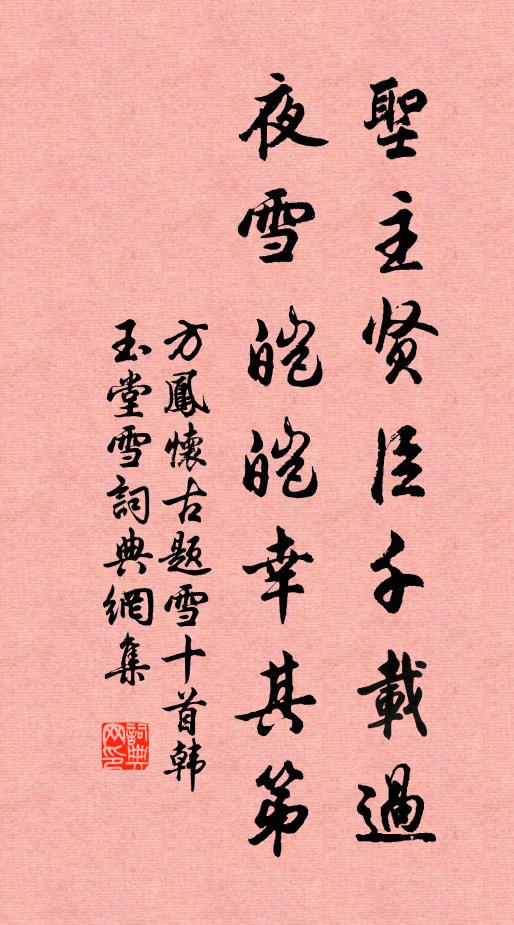 聖主贤臣千載過
夜雪皑皑幸其第
方鳳懷古題雪十首韩
玉堂雪詞典網集
詞典
网印